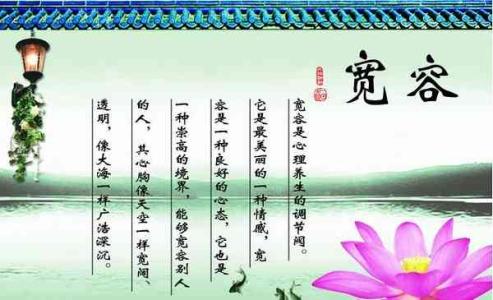 宽容
宽容是心理养生的调节阀。
它是最美丽的一种情感，宽
容是一种良好的心态，它也是
一种崇高的境界，能够宽容别人
的人，其心胸像天空一样宽阔、
透明，像大海一样广浩深沉。